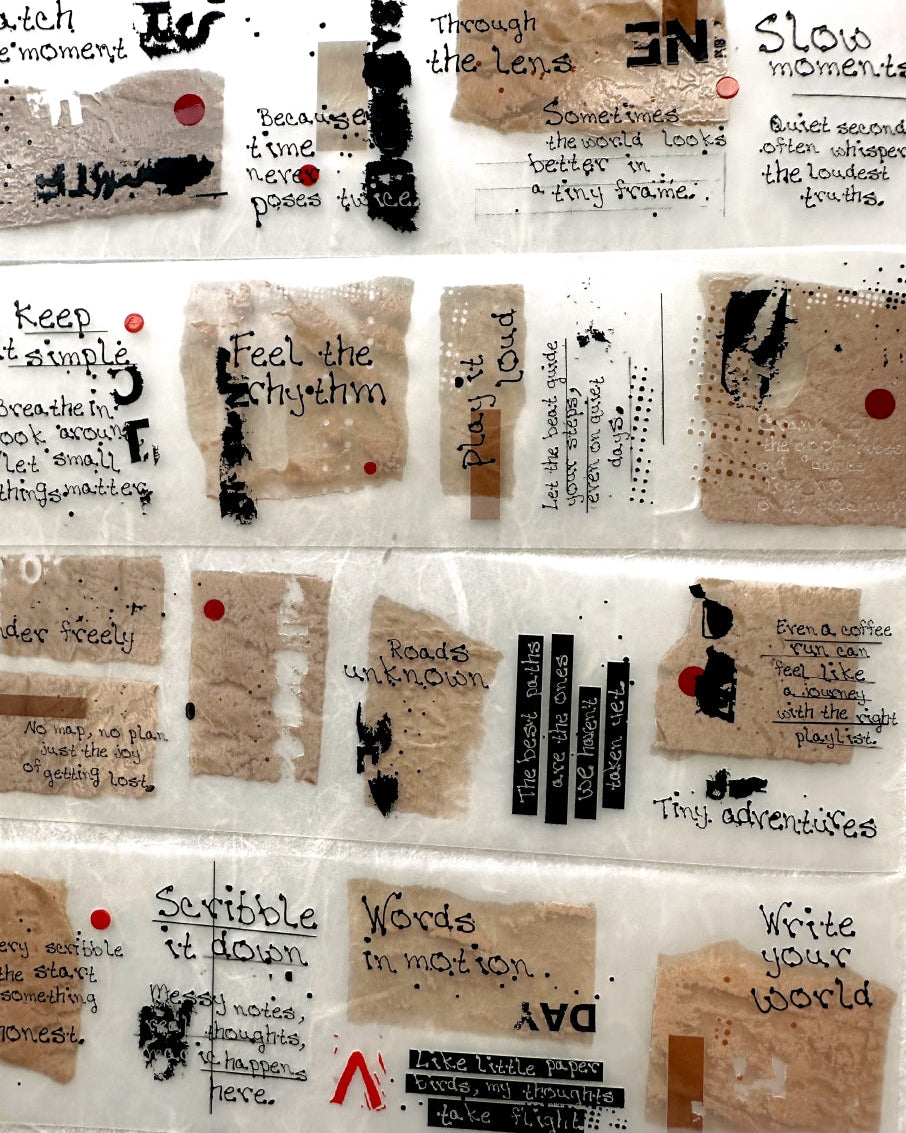 atch
e moment
Because
time
never
poses twice.
Through
the lens
NE
Sometimes
the world looks
better in
a tiny frame.
Slow
moments
Quiet second
often whisper
the loudest
truths.
Keep
t simple
Breathe in,
ook around
let small
things matter.
Feel the
rhythm
play it
loud
Let the beat guide
your steps,
even on quiet
days.
der freely
No map, no plan,
just the joy
of getting lost.
Roads
unknown
The best paths
are the ones
we haven't
taken yet
Even a coffee
run can
feel like
a journey
with the right
playlist.
Tiny adventures
ery scribble
the start
something
honest.
Scribble
it down
Messy notes,
thoughts,
it happens
here.
Words
in motion.
DAY
Like little paper
birds, my thoughts
take flight
Write
your
world